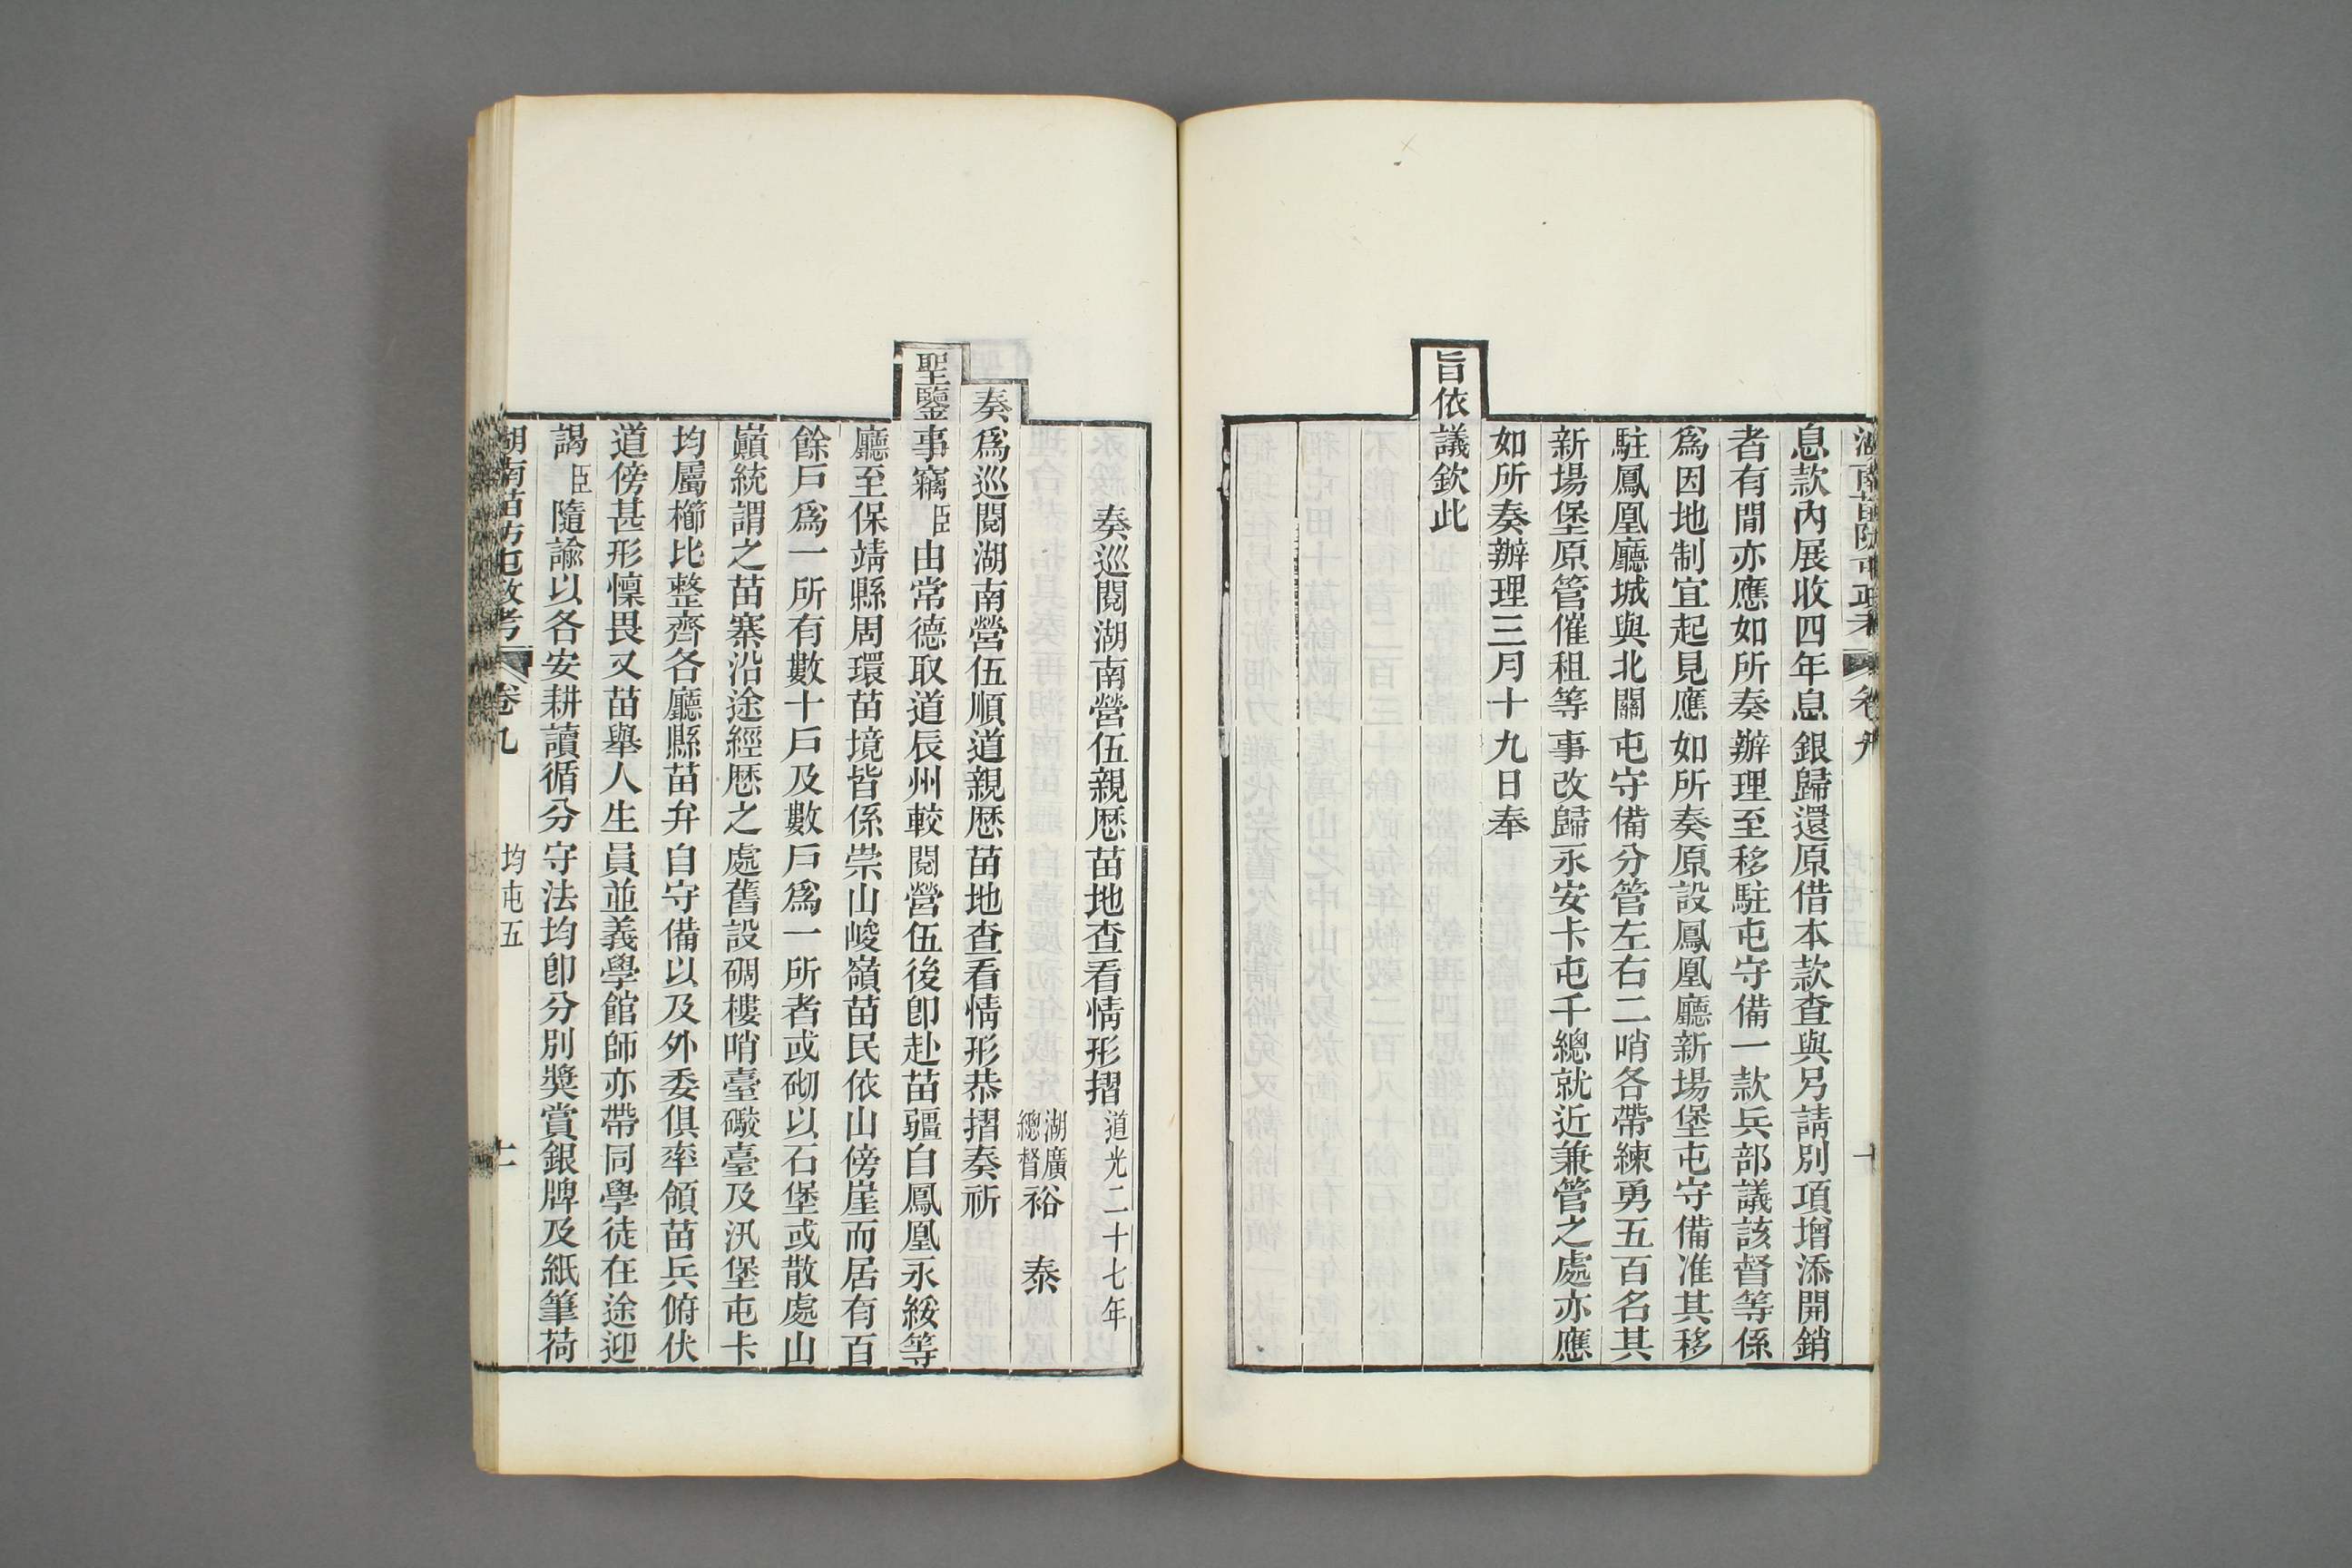 湖南苗防屯政考 卷九 十
息款內展收四年息銀歸還原借本款查與另請別項增添開銷
者有間亦應如所奏辦理至移駐屯守備一款兵部議該督等係
爲因地制宜起見應如所奏原設鳳凰廳新場堡屯守備准其移
駐鳳凰廳城與北關屯守備分管左右二哨各帶練勇五百名其
新場堡原管催租等事改歸永安卡屯千總就近兼管之處亦應
如所奏辦理三月十九日奉
旨依議欽此
奏巡閱湖南營伍親歷苗地查看情形摺 道光二十七年
湖廣總督裕 泰
奏爲巡閱湖南營伍順道親歷苗地查看情形恭摺奏祈
聖鑒事竊臣由常德取道辰州較閱營伍後卽赴苗疆自鳳凰永綏等
廳至保靖縣周環苗境皆係崇山峻嶺苗民依山傍崖而居有百
餘戶爲一所有數十戶及數戶爲一所者或砌以石堡或散處山
巔統謂之苗寨沿途經歷之處舊設碉樓哨臺礮臺及汛堡屯卡
均屬櫛比整齊各廳縣苗弁自守備以及外委俱率領苗兵俯伏
道傍甚形懍畏又苗舉人生員並義學館師亦帶同學徒在途迎
謁臣隨諭以各安耕讀循分守法均卽分別奬賞銀牌及紙筆荷
湖南苗防屯政考 卷九 均屯五 十一